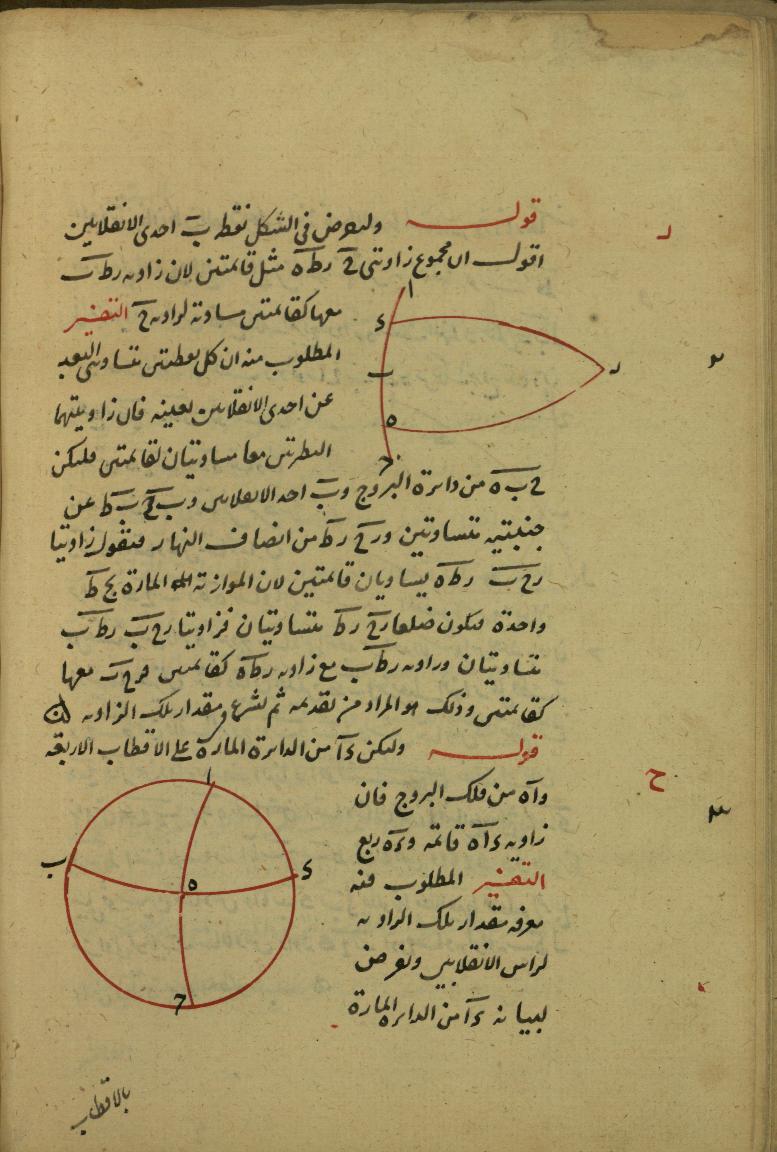 قوله ولنعرض في الشكل نقطه ب احدى الانقلابين
اقول ان مجموع زاويتي ح ر ط ه مثل قائمتين لان زاويه ر ط ب
معها كقائمتين مساوية لزاويه ح التفسير
المطلوب منه ان كل نقطتين متساويتي البعد
عن احدى الانقلابين بعينه فان زاويتهما
معا مساويتان لقائمتين فليكن
ح ب ه من دائرة البروج و ب احد الانقلابين و ب ح ب ط عن
جنبتيه متساويتين و ر ح ر ط من انصاف النهار فنقول زاويتا
ر ح ب ر ط ه يساويان قائمتين لان الموازية المارة ب ح ط
واحدة فيكون ضلعا ر ح ر ط متساويتان فزاويتا ر ح ب ر ط ب
متساويتان وزاويه ر ط ب مع زاويه ر ط ه كقائمتين فر ح ب معها
كقائمتين وذلك هو المراد من تقديمه ثم شرع في مقدار تلك الزاويه
قوله وليكن ء آ من الدائرة المارة على الاقطاب الاربعة
و آ ه من فلك البروج فان
زاويه ء آ ه قائمة و ء ه ربع
التفسير المطلوب منه
معرفه مقدار تلك الزاويه
لراس الانقلابين ونفرض
لبيانه ء آ من الدائره المارة
بالاقطاب
ا
ء
ب
ه
ح
ر
ا
ب
ه
ء
ح
ح